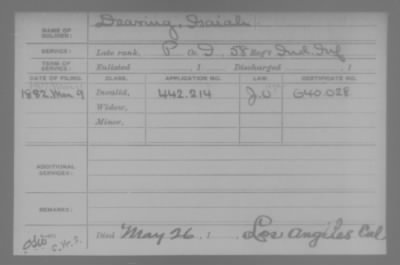 NAME OF SOLDIER: Dearing, Isaiah
SERVICE: Late rank, P Co. I, 58 Reg't Ind. Inf
TERM OF SERVICE: Enlisted , 1 Discharged , 1
DATE OF FILING. CLASS. APPLICATION NO. LAW. CERTIFICATE NO.
1882, Mar 9 Invalid, 442.214 J.W 640.028
Widow,
Minor,
ADDITIONAL SERVICES:
REMARKS:
Died May 26, 1 Los Angiles Cal